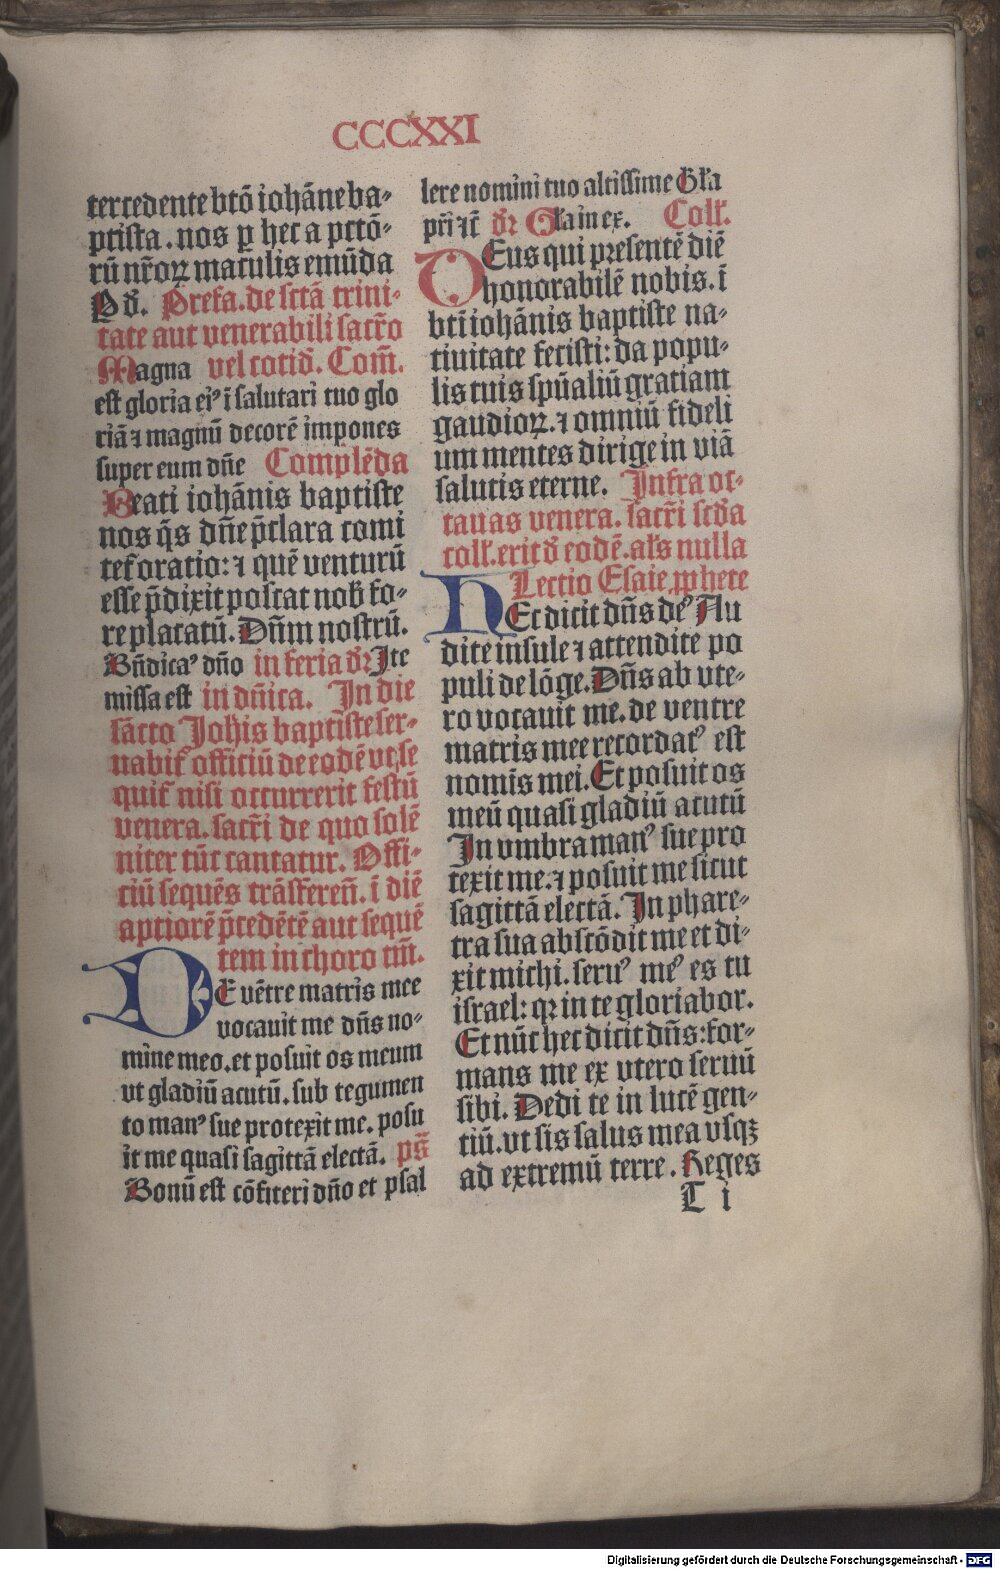 CCCXXI
tercedente btō iohāne ba⸗
ptista. nos ꝑ hec a pctō⸗
rū nr̄oꝝ maculis emūda
Ꝑ d̄. Prefa. de sctā trini⸗
tate aut venerabili sacr̄o
Magna vel cotid̄. Com̄.
est gloria eiꝰ ī salutari tuo glo
riā ⁊ magnū decorē impones
super eum dn̄e Complēda
Beati iohānis baptiste
nos q̄s dn̄e p̄clara comi
tet᷑ oratio: ⁊ quē venturū
esse p̄dixit poscat nob̄ fo⸗
re placatū. Dn̄m nostrū.
Bn̄dicaꝰ dn̄o in feria d̄r Ite
missa est in dn̄ica. In die
sācto Joh̄is baptiste ser⸗
uabit᷑ officiū de eodē vt se
quit᷑ nisi occurrerit festū
venera. sacr̄i de quo solē
niter tūc cantatur. Offi⸗
ciū sequēs trāsferen̄. ī diē
aptiorē p̄cedētē aut sequē
tem in choro tm̄.
DE vētre matris mee
vocauit me dn̄s no⸗
mine meo. et posuit os meum
vt gladiū acutū. sub tegumen
to manꝰ sue protexit me. posu
it me quasi sagittā electā. ps̄
Bonū est cōfiteri dn̄o et psal
lere nomini tuo altissime Gl̄a
pr̄i ⁊c̄ d̄r Gl̄a in ex. Coll̄.
DEus qui presentē diē
honorabilē nobis. ī
bti iohānis baptiste na⸗
tiuitate fecisti: da popu⸗
lis tuis spūaliū gratiam
gaudioꝝ. ⁊ omniū fideli
um mentes dirige in viā
salutis eterne. Infra oc⸗
tauas venera. sacr̄i scd̄a
coll̄. erit d̄ eodē. al̄s nulla
Lectio Esaie ꝓphete
HEc dicit dn̄s deꝰ Au
dite insule ⁊ attendite po
puli de lōge. Dn̄s ab vte⸗
ro vocauit me. de ventre
matris mee recordatꝰ est
nomīs mei. Et posuit os
meū quasi gladiū acutū
In vmbra manꝰ sue pro
texit me. ⁊ posuit me sicut
sagittā electā. In phare⸗
tra sua abscōdit me et di⸗
xit michi. seruꝰ meꝰ es tu
israel: qꝛ in te gloriabor.
Et nūc hec dicit dn̄s: for⸗
mans me ex vtero seruū
sibi. Dedi te in lucē gen⸗
tiū. vt sis salus mea vsqꝫ
ad extremū terre. Reges
T i
Digitalisierung gefördert durch die Deutsche Forschungsgemeinschaft - DFG